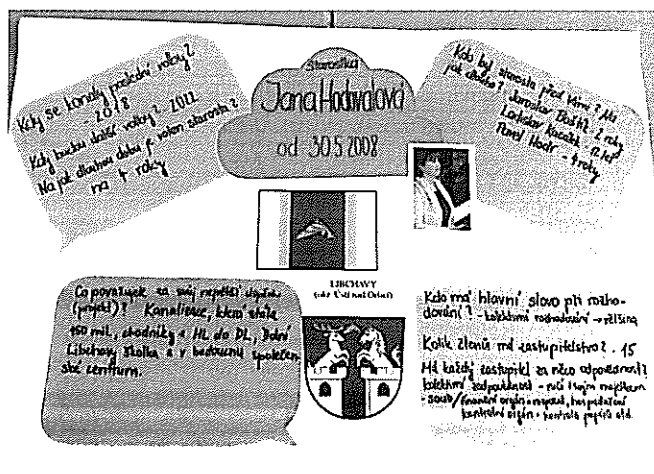 Kdy se konaly poslední volby?
- 2018
Kdy budou další volby? 2022
Na jak dlouhou dobu je volen starosta?
na 4 roky
Starostka
Jana Hodivalová
od 30.5.2008
Kdo byl starosta před Vámi? Na
jak dlouho? Jaroslav 2 roky
Ladislav 12 let
Pavel - 4 roky
LIBCHAVY
(okr. Ústí nad Orlicí)
Co považujete za svůj největší úspěch
(projekt)? Kanalizace, která stála
150 mil., chodníky z HL do DL, Dolní
Libchavy školka a v budoucnu společen-
ské centrum.
Kdo má hlavní slovo při rozho-
dování? - kolektivní rozhodování → většina
Kolik členů má zastupitelstvo? - 15
Má každý zastupitel za něco odpovědnost?
kolektivní zodpovědnost - ručí svojím majetkem
- soud/finanční orgán - rozpočet, hospodaření
kontrolní orgán - kontrola papírů atd.